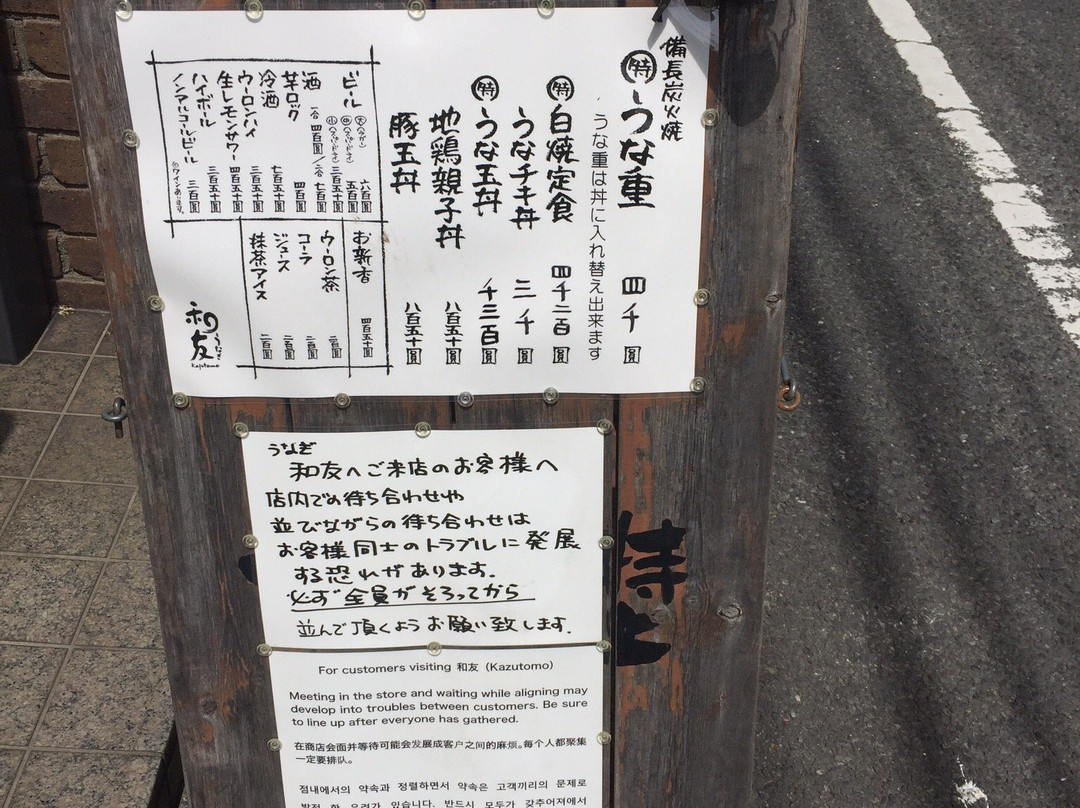 備長炭火焼
特うな重 四千圓
うな重は丼に入れ替え出来ます
特白焼定食 四千二百圓
うなチキ丼 三千圓
特うな玉丼 千三百圓
地鶏親子丼 八百五十圓
豚玉丼 八百五十圓
ビール
六百圓
五百圓
三百五十圓
酒 一合 四百圓/二合 七百圓
芋ロック 四百圓
冷酒 七百五十圓
ウーロンハイ 三百五十圓
生レモンサワー 四百五十圓
ハイボール 三百五十圓
ノンアルコールビール 三百圓
ワインあります。
お新香 四百五十圓
ウーロン茶 二百圓
コーラ 二百圓
ジュース 二百圓
抹茶アイス 二百圓
うなぎ
和友
Kazutomo
うなぎ
和友へご来店のお客様へ
店内での待ち合わせや
並びながらの待ち合わせは
お客様同士のトラブルに発展
する恐れがあります。
必ず全員がそろってから
並んで頂くようお願い致します。
特上
For customers visiting 和友（Kazutomo）
Meeting in the store and waiting while aligning may
develop into troubles between customers. Be sure
to line up after everyone has gathered.
在商店会面并等待可能会发展成客户之间的麻烦。每个人都聚集
一定要排队。
점내에서의 약속과 정렬하면서 약속은 고객끼리의 문제로
발전 할 우려가 있습니다. 반드시 모두가 갖추어져에서